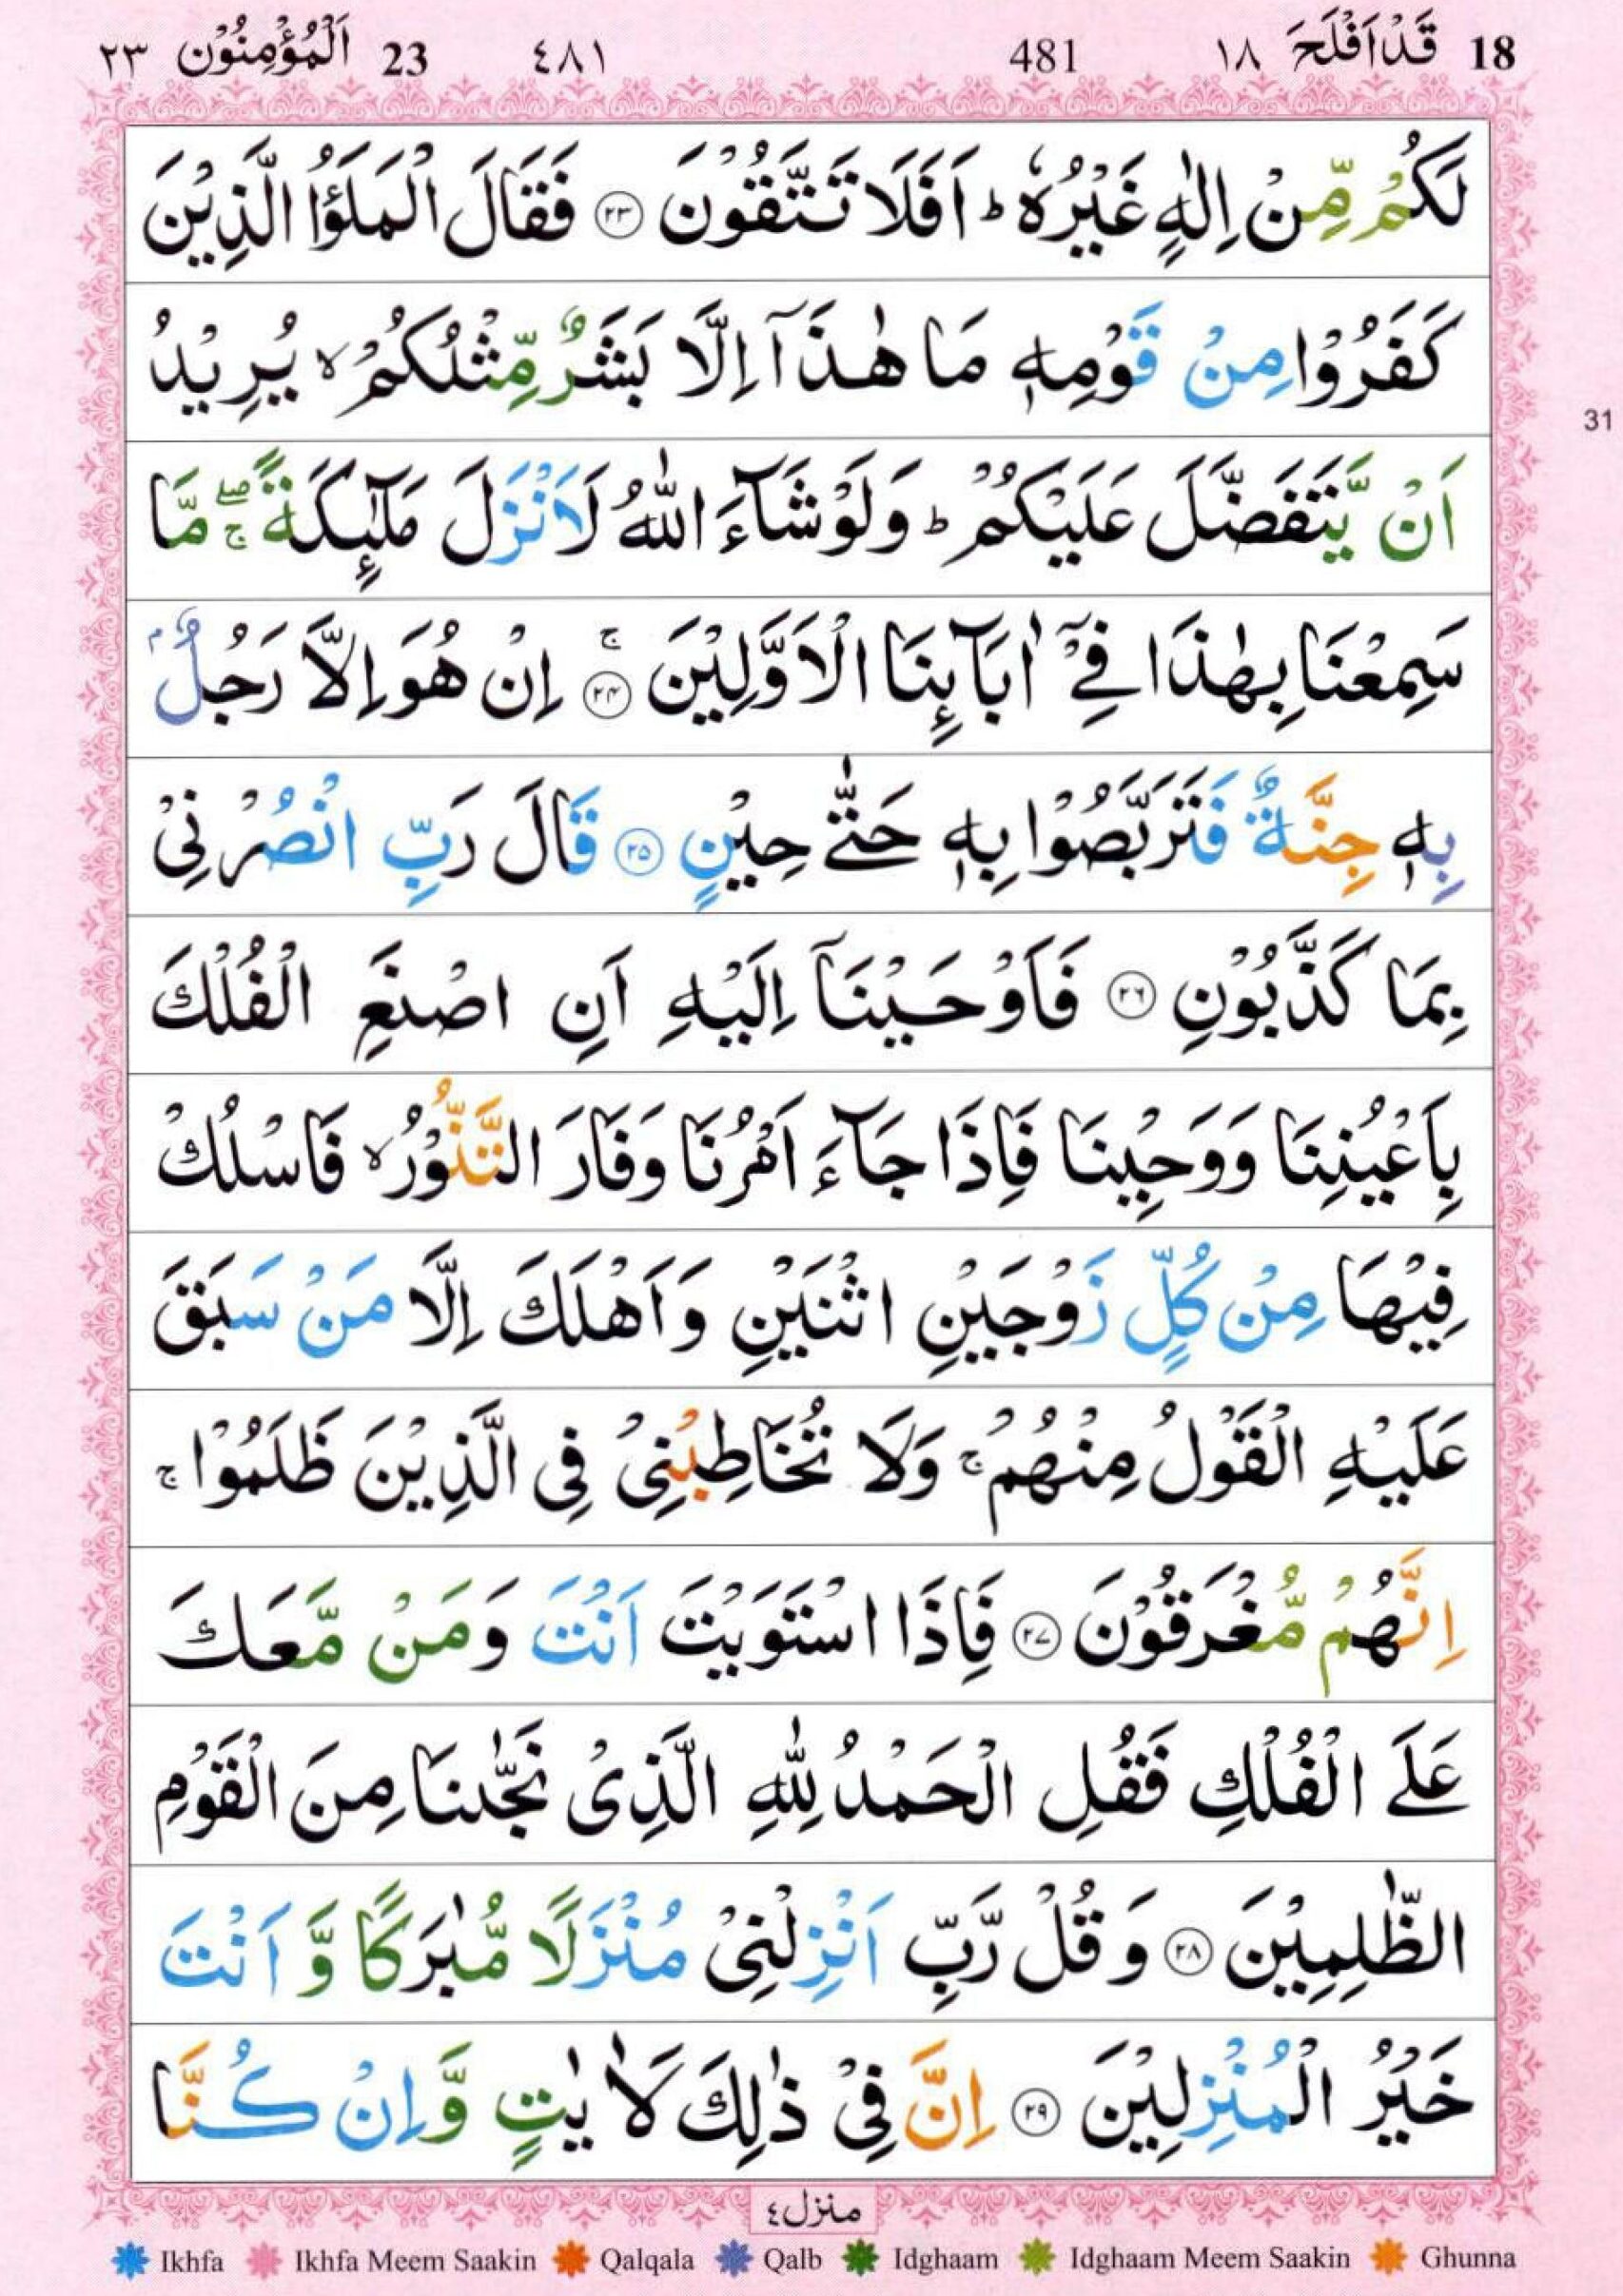 18 قَدْ اَفْلَحَ ١٨ 481 ٤٨١ 23 اَلْمُؤْمِنُوْن ٢٣
لَكُمْ مِّنْ اِلٰهٍ غَيْرُهٗ ؕ اَفَلَا تَتَّقُوْنَ ۝۲۳ فَقَالَ الْمَلَؤُا الَّذِيْنَ
كَفَرُوْا مِنْ قَوْمِهٖ مَا هٰذَآ اِلَّا بَشَرٌ مِّثْلُكُمْ ۙ يُرِيْدُ
31
اَنْ يَّتَفَضَّلَ عَلَيْكُمْ ؕ وَلَوْ شَآءَ اللّٰهُ لَاَنْزَلَ مَلٰٓئِكَةً ۖۚ مَّا
سَمِعْنَا بِهٰذَا فِيْٓ اٰبَآئِنَا الْاَوَّلِيْنَ ۝۲۴ۚ اِنْ هُوَ اِلَّا رَجُلٌۢ
بِهٖ جِنَّةٌ فَتَرَبَّصُوْا بِهٖ حَتّٰى حِيْنٍ ۝۲۵ قَالَ رَبِّ انْصُرْنِيْ
بِمَا كَذَّبُوْنِ ۝۲۶ فَاَوْحَيْنَآ اِلَيْهِ اَنِ اصْنَعِ الْفُلْكَ
بِاَعْيُنِنَا وَوَحْيِنَا فَاِذَا جَآءَ اَمْرُنَا وَفَارَ التَّنُّوْرُ ۙ فَاسْلُكْ
فِيْهَا مِنْ كُلٍّ زَوْجَيْنِ اثْنَيْنِ وَاَهْلَكَ اِلَّا مَنْ سَبَقَ
عَلَيْهِ الْقَوْلُ مِنْهُمْ ۚ وَلَا تُخَاطِبْنِيْ فِى الَّذِيْنَ ظَلَمُوْا ۚ
اِنَّهُمْ مُّغْرَقُوْنَ ۝۲۷ فَاِذَا اسْتَوَيْتَ اَنْتَ وَمَنْ مَّعَكَ
عَلَى الْفُلْكِ فَقُلِ الْحَمْدُ لِلّٰهِ الَّذِيْ نَجّٰىنَا مِنَ الْقَوْمِ
الظّٰلِمِيْنَ ۝۲۸ وَقُلْ رَّبِّ اَنْزِلْنِيْ مُنْزَلًا مُّبٰرَكًا وَّاَنْتَ
خَيْرُ الْمُنْزِلِيْنَ ۝۲۹ اِنَّ فِيْ ذٰلِكَ لَاٰيٰتٍ وَّاِنْ كُنَّا
منزل٤
Ikhfa Ikhfa Meem Saakin Qalqala Qalb Idghaam Idghaam Meem Saakin Ghunna